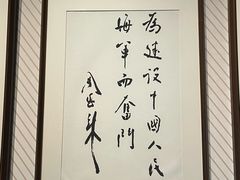 為建設中國人民
海軍而奮鬥
周恩来